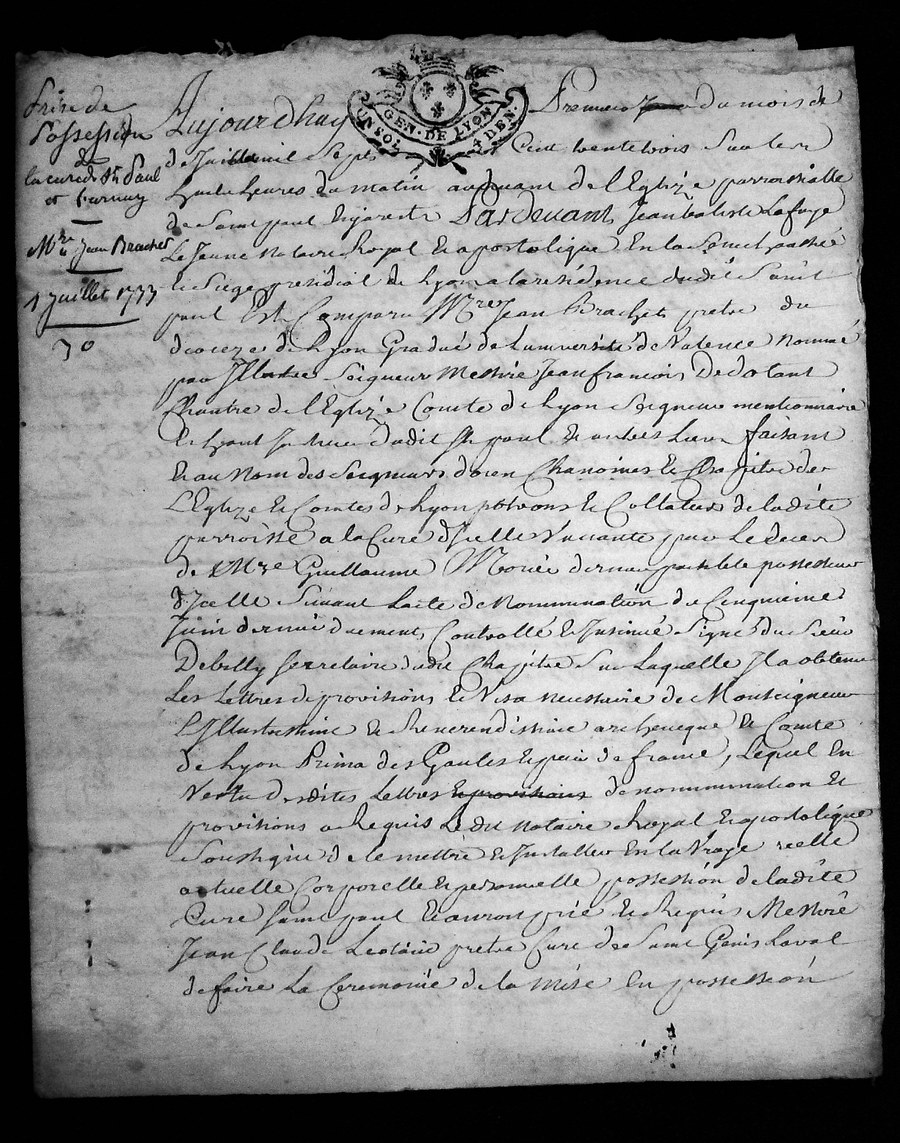 Prise de
Possession
de
la cure de St Paul
et
Mre Jean Brachet
1 Juillet 1733
30
GEN. DE LYON
UN SOL 4 DEN.
Aujourdhuy Premier du mois de
de Juillet mil Sept Cent trente trois Sur les
huit heures du matin au devant de l'Eglize parroissialle
de Saint paul En jarest Pardevant Jean batiste Lafaye
Le Jeune Notaire Royal Et apostolique En la Senechaussée
et Siege presidial de Lyon a la residence dudit Saint
paul Est Comparu Mre Jean Brachet pretre du
dioceze de Lyon Gradué de Luniversité de Valence nommé
par Illustre Seigneur Messire Jean francois De
Chantre de l'Eglize Comte de Lyon Seigneur mentionnaire
Et hault Justicier dudit St paul Et autres Lieux faisant
Et au Nom des Seigneurs doien Chanoines Et Chapitre de
L'Eglize Et Comtes de Lyon patrons Et Collateurs de ladite
parroisse a la Cure d'Icelle Vaccante par Le deces
de Mre Guillaume dernier paisible possesseur
d'Icelle Suivant Lacte de Nommination du Cinquieme
Juin dernier duement Controllé Et Insinué Signé du Sieur
Debilly Secretaire dudit Chapitre Sur Laquelle Il a obtenu
Les Lettres de provisions Et Visa necessaire de Monseigneur
L'Illustrissime Et Reverendissime archeveque Et Comte
de Lyon Prima des Gaules Et pair de france, Lequel En
Vertu desdites Lettres Et provisions de nommination Et
provisions a Requis Ledit Notaire Royal Et apostolique
Soussigné de le mettre Et Installer En la Vraye reelle
actuelle Corporelle Et personnelle possession de ladite
Cure Saint paul Et auroit prié Et Requis Messire
Jean Claude pretre Curé de Saint Genis Laval
de faire La Ceremonie de la mise En possession